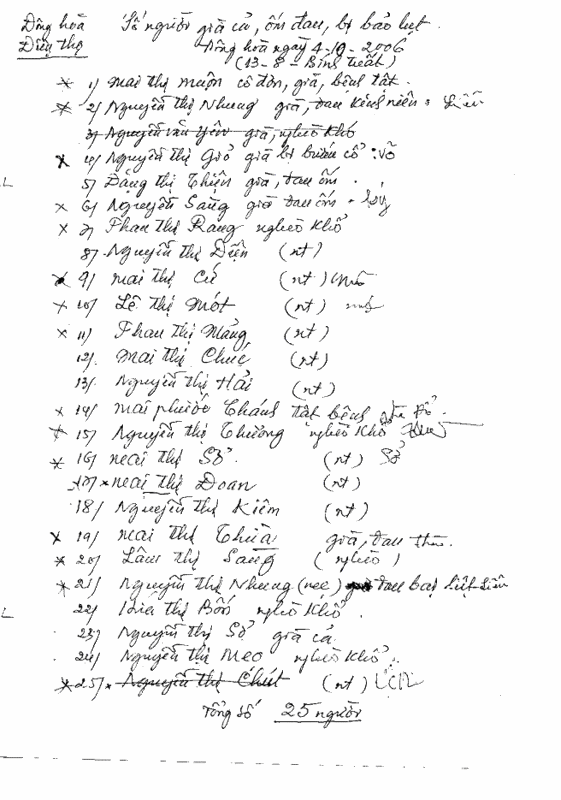 Đông hoà Số người già cả, ốm đau, bị bão lụt
Điền thọ Đông hoà ngày 4-10-2006
(13-8-Bính Tuất)
* 1) Mai thị Muộn cô đơn, già, bệnh tật.
* 2) Nguyễn thị Nhung già, đau kinh niên
3) Nguyễn văn Yên già, nghèo khó
x 4) Nguyễn Thị Giỏ già bị bướu cổ : Võ
5) Đặng thị Thiện già, đau ốm.
x 6) Nguyễn Sang già đau ốm
x 7) Phan Thị Rang nghèo khổ
8) Nguyễn thị Diện (nt)
x 9) Mai thị Cú (nt)
x 10) Lê thị Mót (nt)
x 11) Phan thị Mảng (nt)
12) Mai thị Chúc (nt)
13) Nguyễn thị Hải (nt)
x 14) Mai phước Thánh tật bệnh
x 15) Nguyễn thị Thường nghèo khổ
* 16) Mai thị Sở. (nt) Sở
17) x Mai thị Doan (nt)
18) Nguyễn thị Kiêm (nt)
x 19) Mai thị Thừa già, đau
* 20) Lâm thị Sang (nghèo)
* 21) Nguyễn thị Nhung đau bại liệt
22) thị Bốn nghèo khổ.
23) Nguyễn thị Sở già cả
24) Nguyễn thị Meo nghèo khổ.
* 25) x Nguyễn thị Chút (nt)
Tổng số 25 người